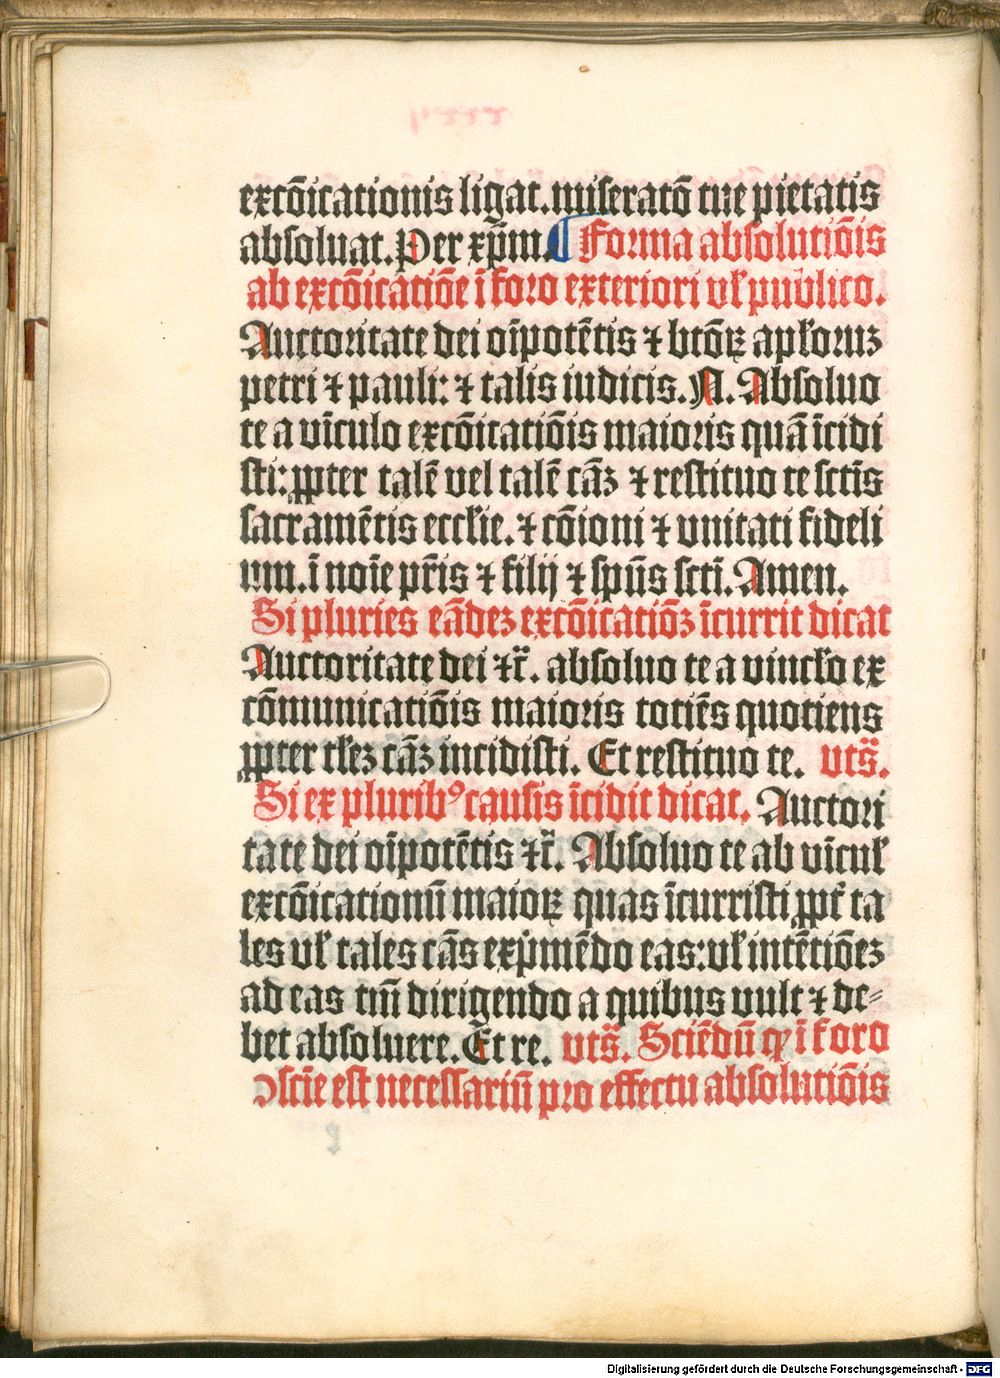 excōicationis ligat. miseratō tue pietatis
absoluat. Per xp̄m. ¶ Forma absolutiōis
ab excōicatiōe ī foro exteriori vl̕ publico.
Auctoritate dei oīpotētis ⁊ btōꝝ apl̕oruꝫ
petri ⁊ pauli: ⁊ talis iudicis. N. Absoluo
te a vīculo excōicatiōis maioris quā īcidi
sti: ꝓpter talē vel talē cāꝫ ⁊ restituo te sctīs
sacramētis eccl̕ie. ⁊ cōioni ⁊ vnitati fideli
um. ī noīe pr̄is ⁊ filij ⁊ spūs sctī. Amen.
Si pluries eādeꝫ excōicatiōꝫ īcurrit dicat
Auctoritate dei ⁊c̄. absoluo te a vincl̕o ex
cōmunicatiōis maioris totiēs quotiens
ꝓpter tl̕eꝫ cāꝫ incidisti. Et restituo te. vts̄.
Si ex pluribꝰ causis īcidit dicat. Auctori
tate dei oīpotētis ⁊c̄. Absoluo te ab vīcul̕
excōicationū maioꝝ quas īcurristi ꝓpt̕ ta
les vl̕ tales cās exp̄imēdo eas: vl̕ intētiōeꝫ
ad eas tm̄ dirigendo a quibus vult ⁊ de⸗
bet absoluere. Et re. vts̄. Sciēdū ꝙ ī foro
ↄsciē est necessariū pro effectu absolutiōis
Digitalisierung gefördert durch die Deutsche Forschungsgemeinschaft - DFG